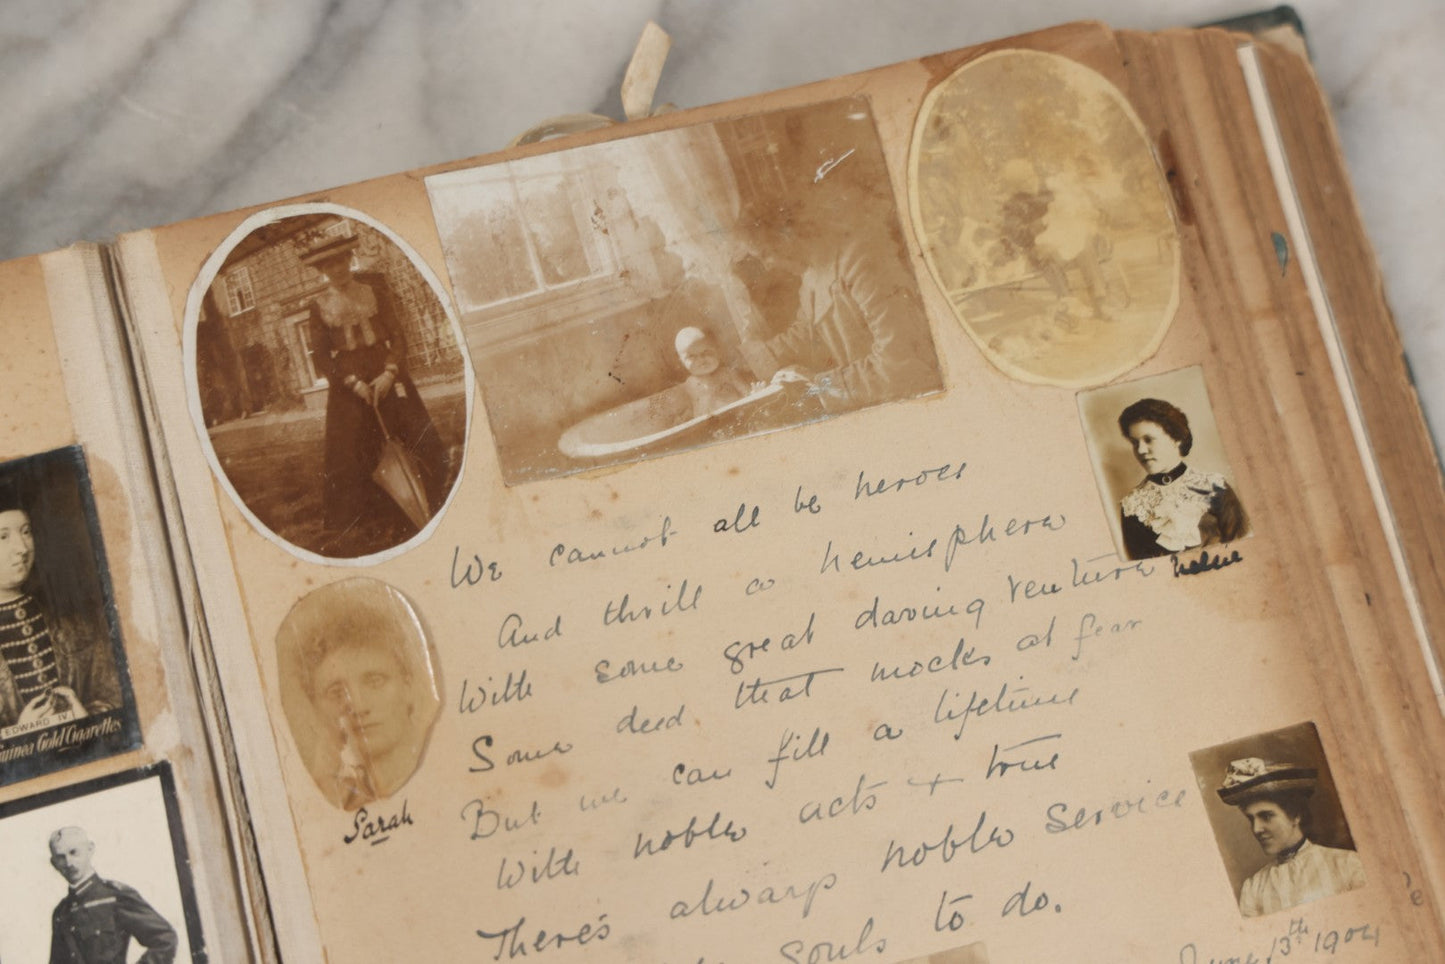 We cannot all be heroes
And thrill a hemisphere
With some great daring venture
Some deed that mocks at fear
But we can fill a lifetime
With noble acts + true
There's always noble service
souls to do.
June 13th 1904
Nellie
Sarah
EDWARD IV
Guinea Gold Cigarettes